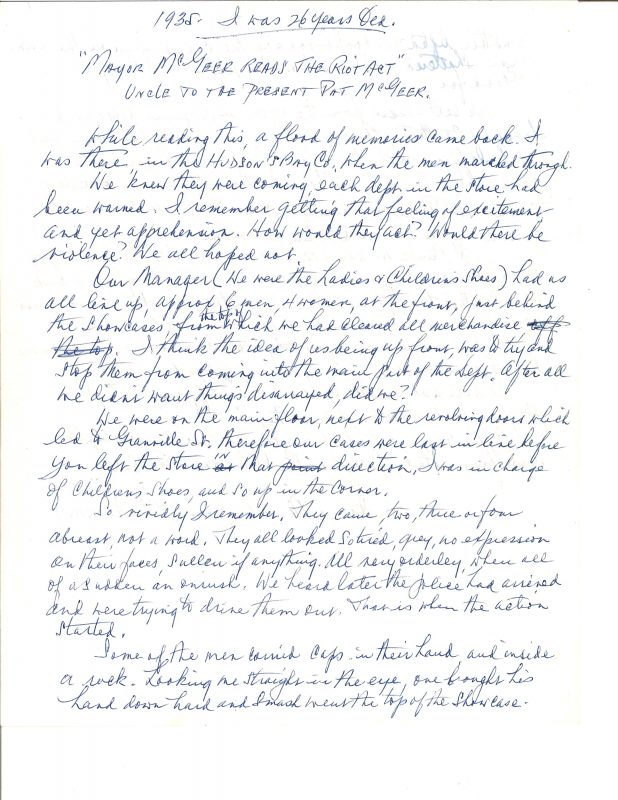 1935. I was 26 Years Dec.
"Mayor McGeer Reads The Riot Act"
Uncle to the Present Pat McGeer.
While reading this, a flood of memories came back. I
was there in the Hudson's Bay Co. when the men marched through.
We knew they were coming, each dept. in the store had
been warned. I remember getting that feeling of excitement
and yet apprehension. How would they act? Would there be
violence? We all hoped not.
Our Manager (We were the Ladies & Childrens Shoes) had us
all line up, approx 6 men, 4 women, at the front, just behind
the showcases, from the top of which we had cleared all merchandise off
the top. I think the idea of us being up front, was to try and
stop them from coming into the main part of the dept. After all
we didn't want things disarrayed, did we?
We were on the main floor, next to the revolving doors which
led to Granville St. therefore our cases were last in line before
you left the store at in that point direction, I was in charge
of Childrens Shoes, and so up in the corner.
So vividly I remember. They came, two, three or four
abreast, not a word. They all looked so tired, grey, no expression
on their faces, sullen if anything. All very orderley, when all
of a sudden an onrush. We heard later the police had arrived
and were trying to drive them out. That is when the action
started.
Some of the men carried caps in their hand and inside
a rock. Looking me straight in the eye, one brought his
hand down hard and smash went the top of the showcase.